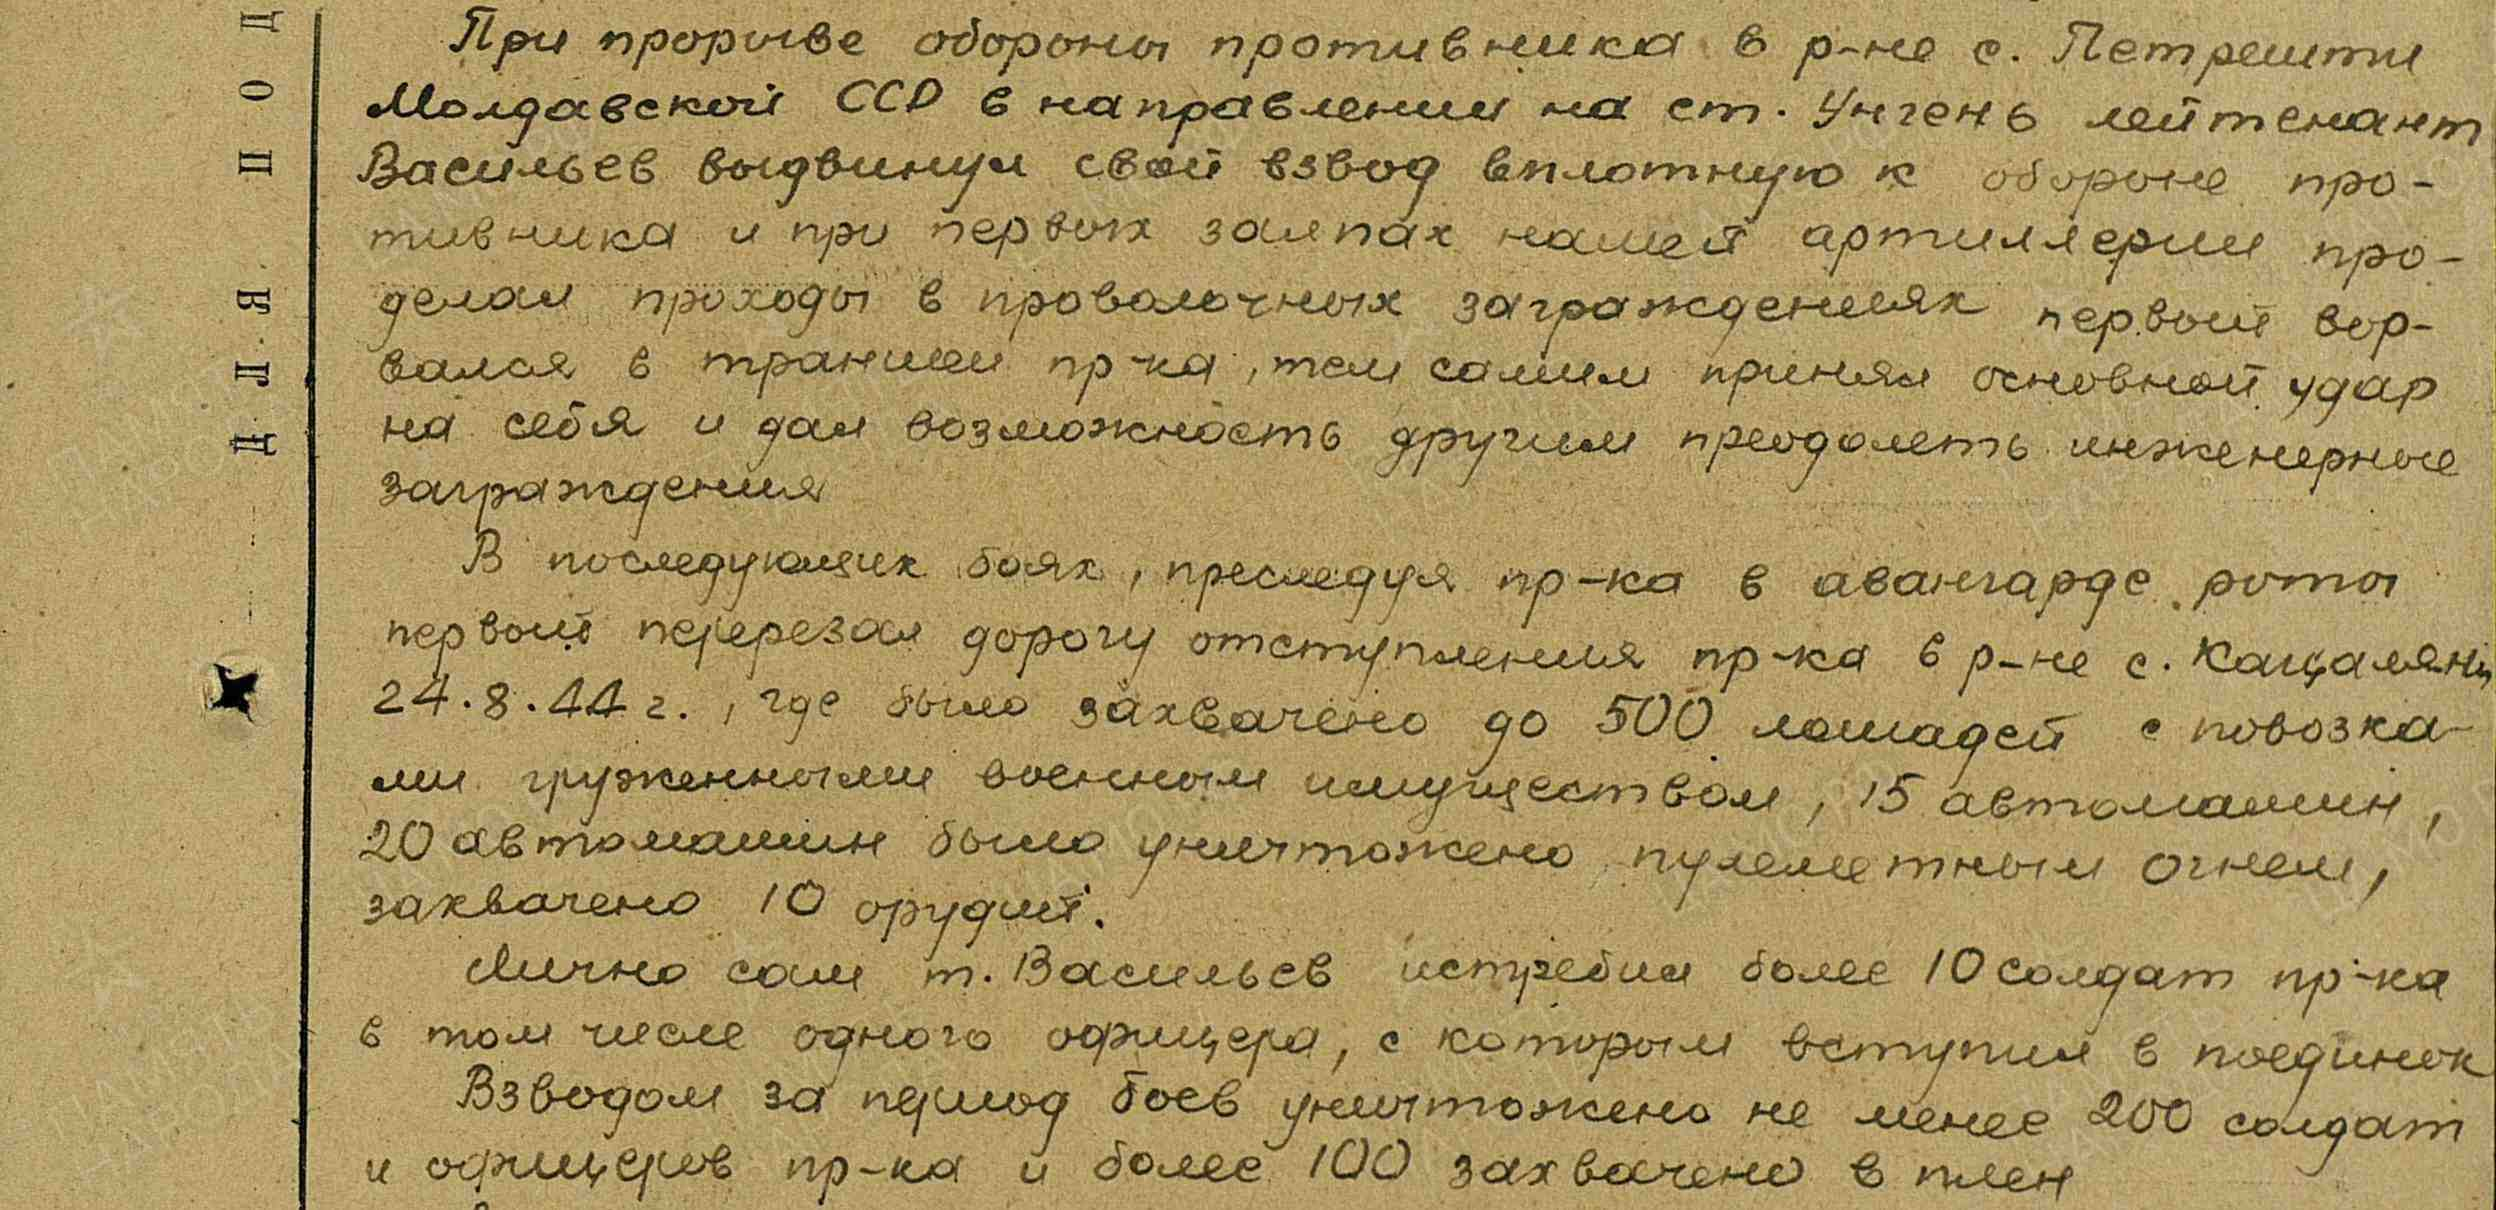 При прорыве обороны противника в р-не с. Петрешти
Молдавской ССР в направлении на ст. Унгень лейтенант
Васильев выдвинул свой взвод вплотную к обороне про-
тивника и при первых залпах нашей артиллерии про-
делал проходы в проволочных заграждениях первый вор-
вался в траншеи пр-ка, тем самим принял основной удар
на себя и дал возможность другим преодолеть инженерные
заграждения
В последующих боях, преследуя пр-ка в авангарде роты
первый перерезал дорогу отступления пр-ка в р-не с. Кацалянь
24.8.44 г., где было захвачено до 500 лошадей с повозка-
ми груженными военным имуществом, 15 автомашин,
20 автомашин было уничтожено пулеметным огнем,
захвачено 10 орудий.
Лично сам т. Васильев истребил более 10 солдат пр-ка
в том числе одного офицера, с которым вступил в поединок
Взводом за период боев уничтожено не менее 200 солдат
и офицеров пр-ка и более 100 захвачено в плен
ДЛЯ ПОД